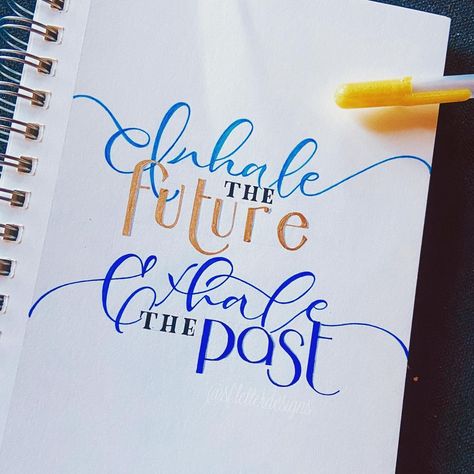 Inhale
THE
future
Exhale
THE past